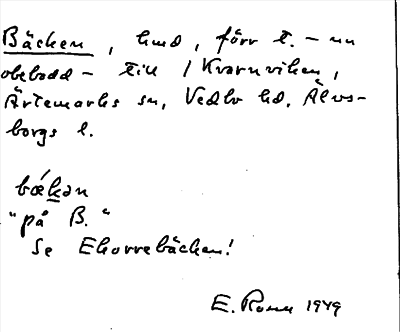 Bäcken, lmd, förr t. – nu
obebodd – till 1 Kvarnviken,
Ärtemarks sn, Vedbo hd, Älvs-
borgs l.
bǽkən
"på B."
Se Ekorrebäcken!
E. Rosen 1949